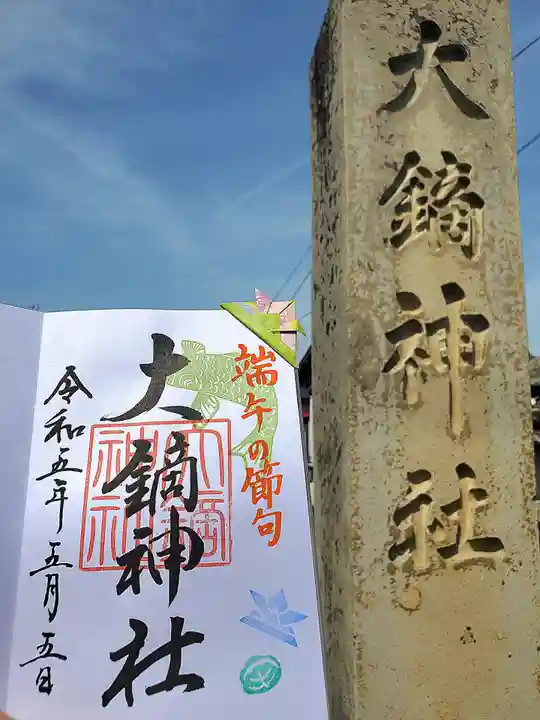 大鏑神社
端午の節句
大鏑神社
令和五年 五月 五日